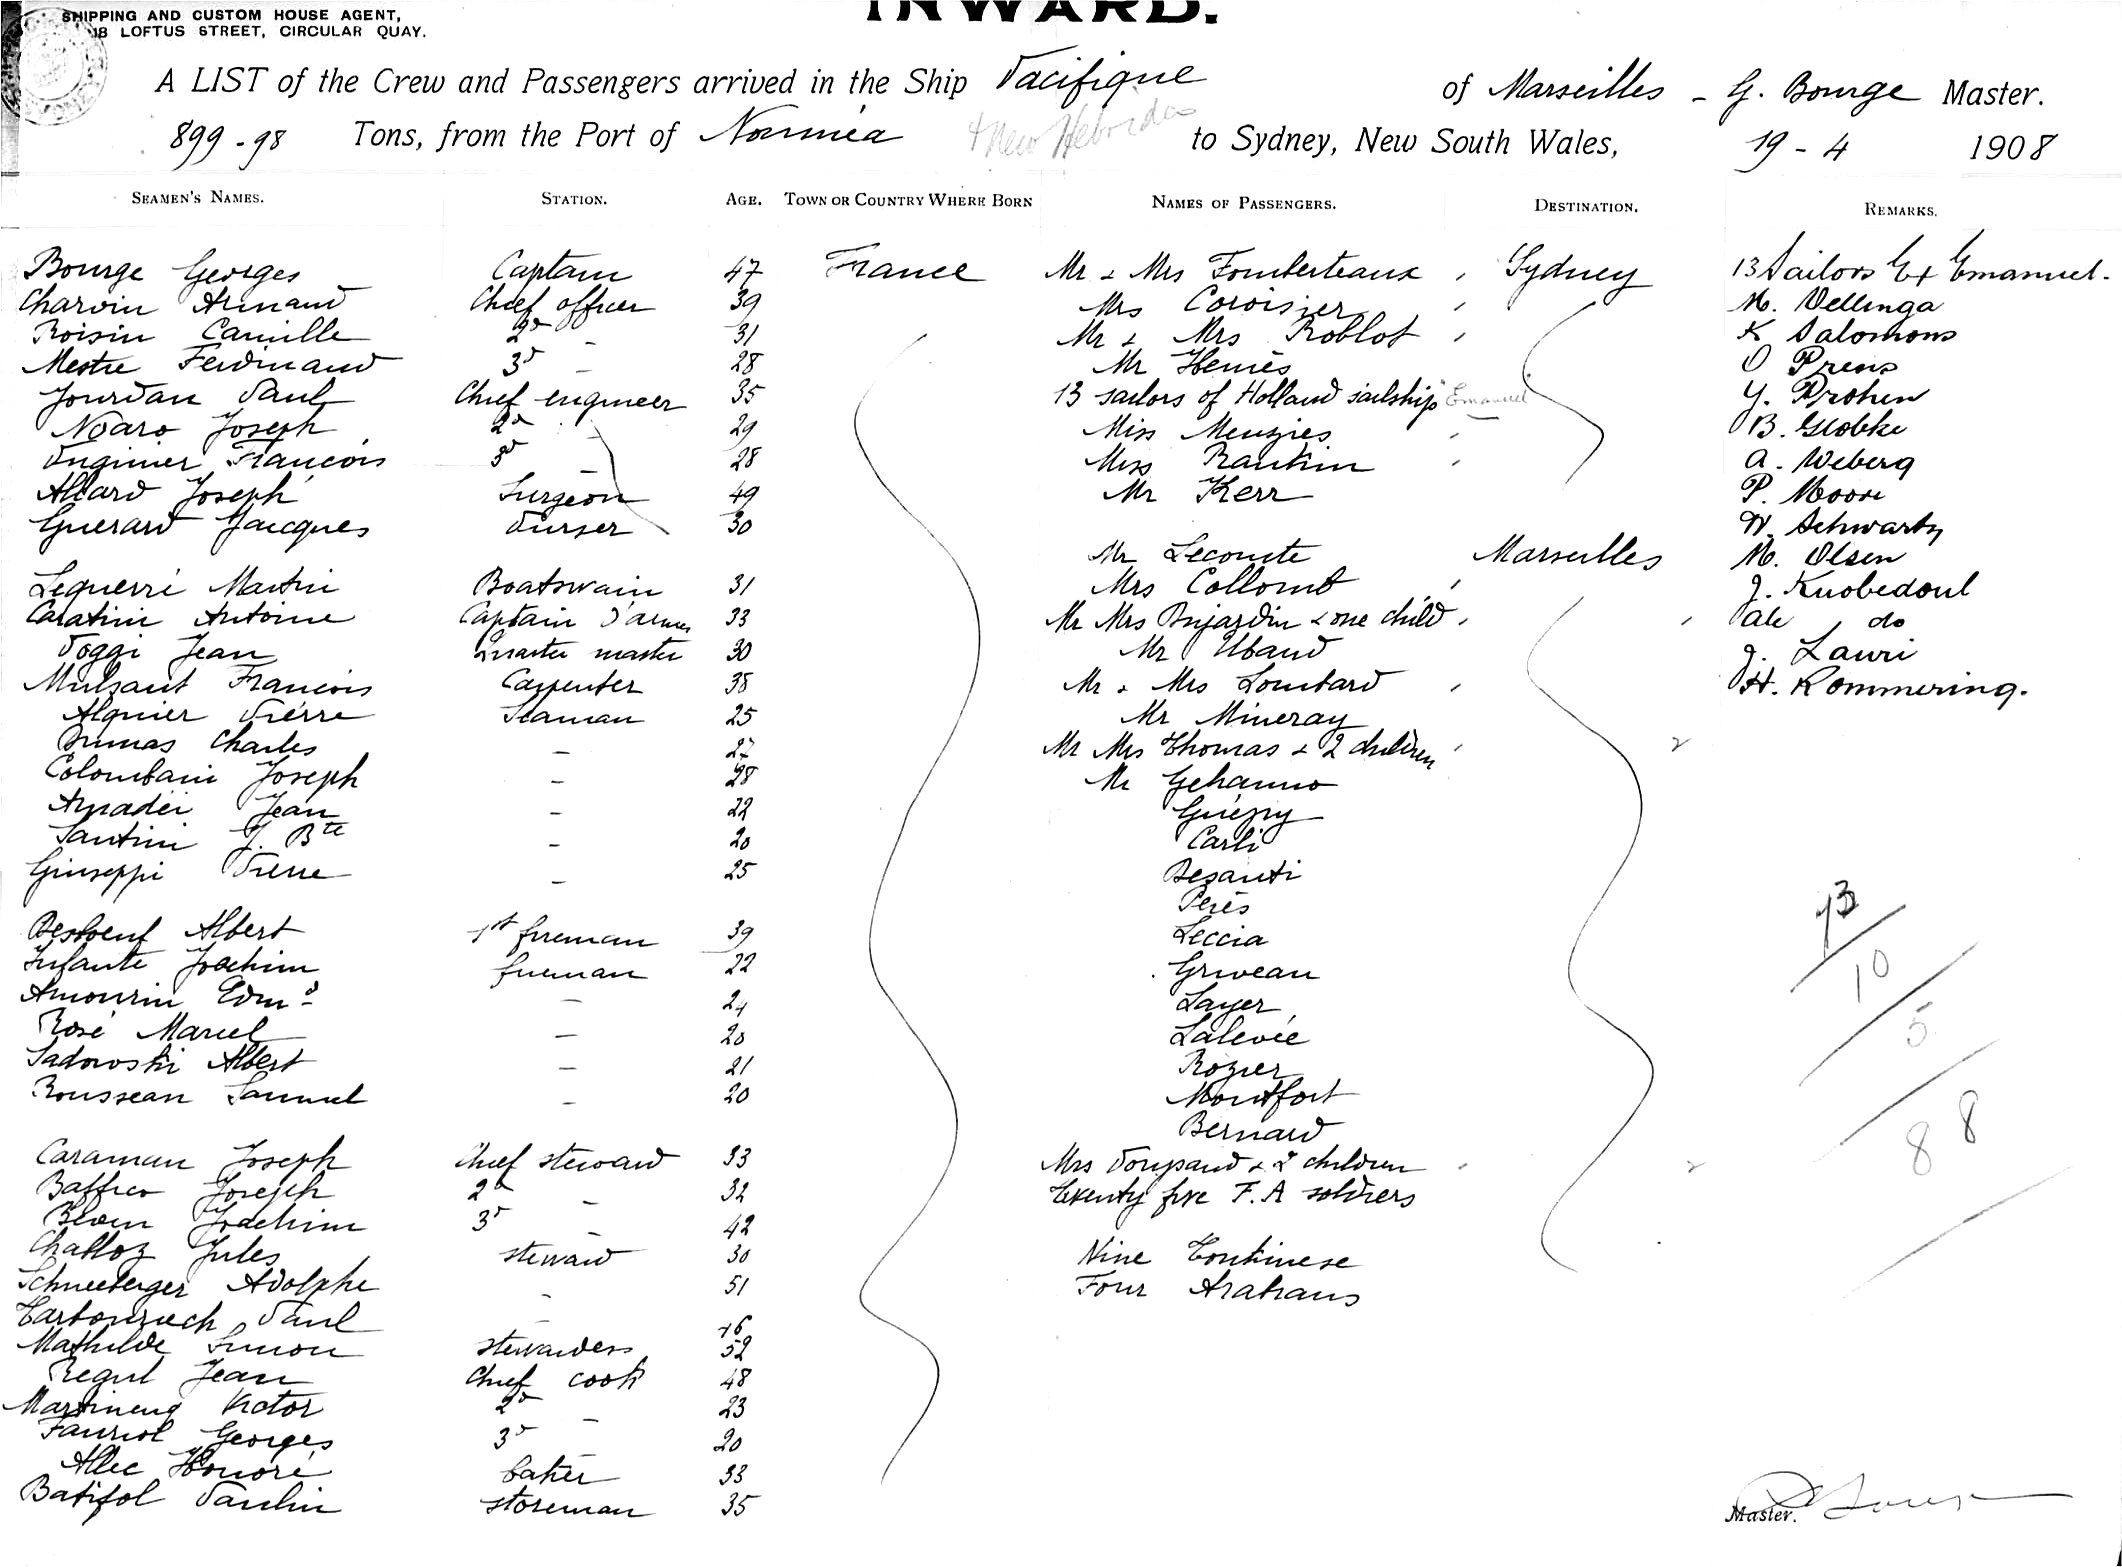 SHIPPING AND CUSTOM HOUSE AGENT,
18 LOFTUS STREET, CIRCULAR QUAY.
INWARD.
A LIST of the Crew and Passengers arrived in the Ship Pacifique of Marseilles - G. Bourge Master.
899-98 Tons, from the Port of Noumea + New Hebrides to Sydney, New South Wales, 19-4 1908
SEAMEN'S NAMES. STATION. AGE. TOWN OR COUNTRY WHERE BORN NAMES OF PASSENGERS. DESTINATION. REMARKS.
Bourge Georges Captain 47 France
Charvin Armand Chief officer 39
Roisin Camille 2d - 31
Mestre Ferdinand 3d - 28
Jourdan Paul Chief engineer 35
Noaro Joseph 2d 29
François 3d - 28
Allard Joseph Surgeon 49
Guerard Jacques Purser 30
Lequerré Martin Boatswain 31
Caratini Antoine Captain d'armes 33
Poggi Jean Quarter master 30
Mulsant François Carpenter 38
Alquier Pierre Seaman 25
Dumas Charles - 27
Colombani Joseph - 28
Amadei Jean - 22
Santini J. Bte - 20
Giuseppi Pierre - 25
Desboeuf Albert 1st fireman 39
Infante Joachim fireman 22
Amourin Edmd - 24
Rosé Marcel - 20
Sadowski Albert - 21
Rousseau Samuel - 20
Caraman Joseph Chief steward 33
Joseph 2d - 32
Joachim 3d - 42
Challoz Jules steward 30
Schneeberger Adolphe - 51
Paul - 16
Mathilde Simon stewardess 52
Regul Jean Chief cook 48
Martinenq Victor 2d - 23
Fauriol Georges 3d - 20
Allec Honoré baker 33
Batifol Paulin storeman 35
Mr & Mrs Fomberteaux , Sydney
Mrs Coroisier ,
Mr & Mrs Roblot ,
Mr Hemès
13 sailors of Holland sailship "Emanuel"
Miss Menzies ,
Miss Rankin ,
Mr Kerr
Mr Lecomte Marseilles
Mrs Collomb ,
Mr Mrs Dujardin & one child ,
Mr Ubaud
Mr & Mrs Lombard ,
Mr Mineray
Mr Mrs Thomas & 2 children ,
Mr Gehanno
Guézry
Carli
Desanti
Perès
Leccia
Griveau
Layer
Lalevée
Rozier
Montfort
Bernard
Mrs & 2 children
Twenty five F.A soldiers
Nine Tonkinese
Four Arabians
13 Sailors Ex Emanuel.
M. Vellinga
K Salomons
O Prens
Y. Prohen
B. Globke
A. Weberg
P. Moore
W. Schwartz
M. Olsen
J. Knobedoul
Ale do
J. Lauri
H. Rommering.
13
10
5
88
Master.